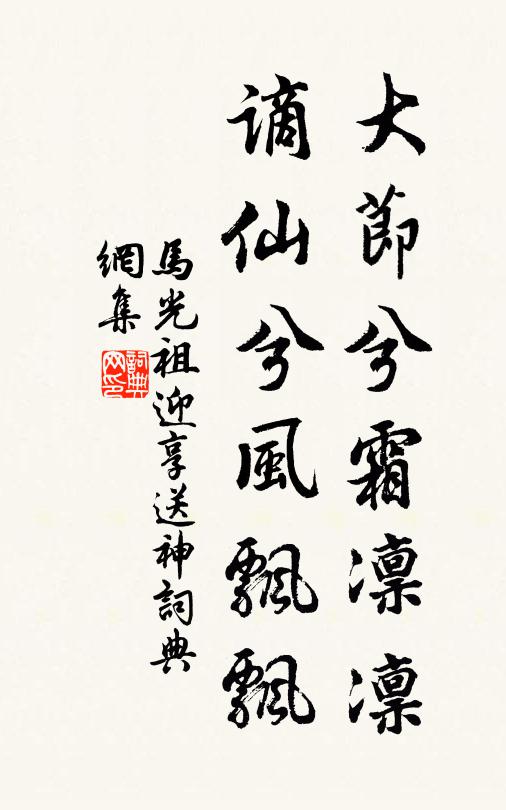 大節兮霜凜凜
謫仙兮風飄飄
馬光祖迎享送神詞典
網集
詞典網印